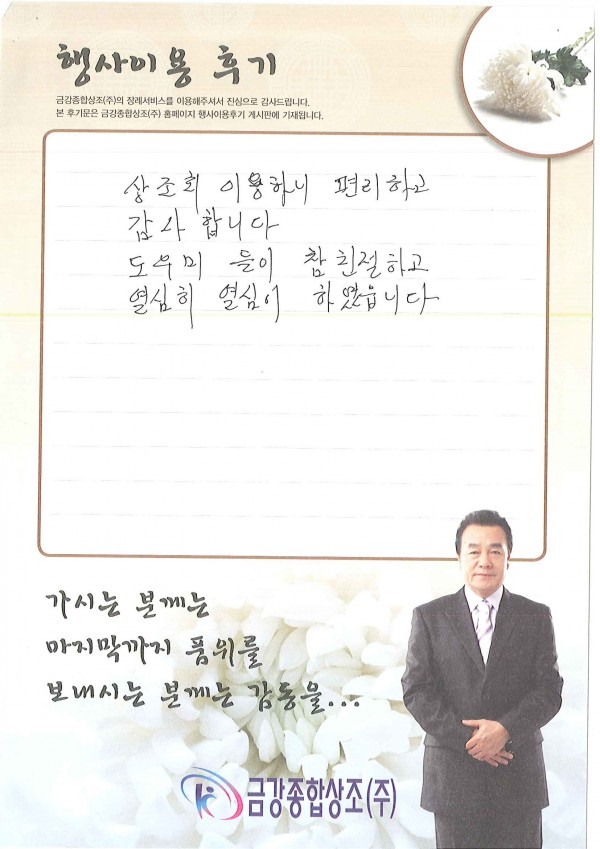 행사이용 후기
금강종합상조(주)의 장례서비스를 이용해주셔서 진심으로 감사드립니다.
본 후기문은 금강종합상조(주) 홈페이지 행사이용후기 게시판에 기재됩니다.
상조회 이용하니 편리하고
감사 합니다
도우미 들이 참 친절하고
열심히 열심이 하였읍니다
가시는 분께는
마지막까지 품위를
보내시는 분께는 감동을...
금강종합상조(주)